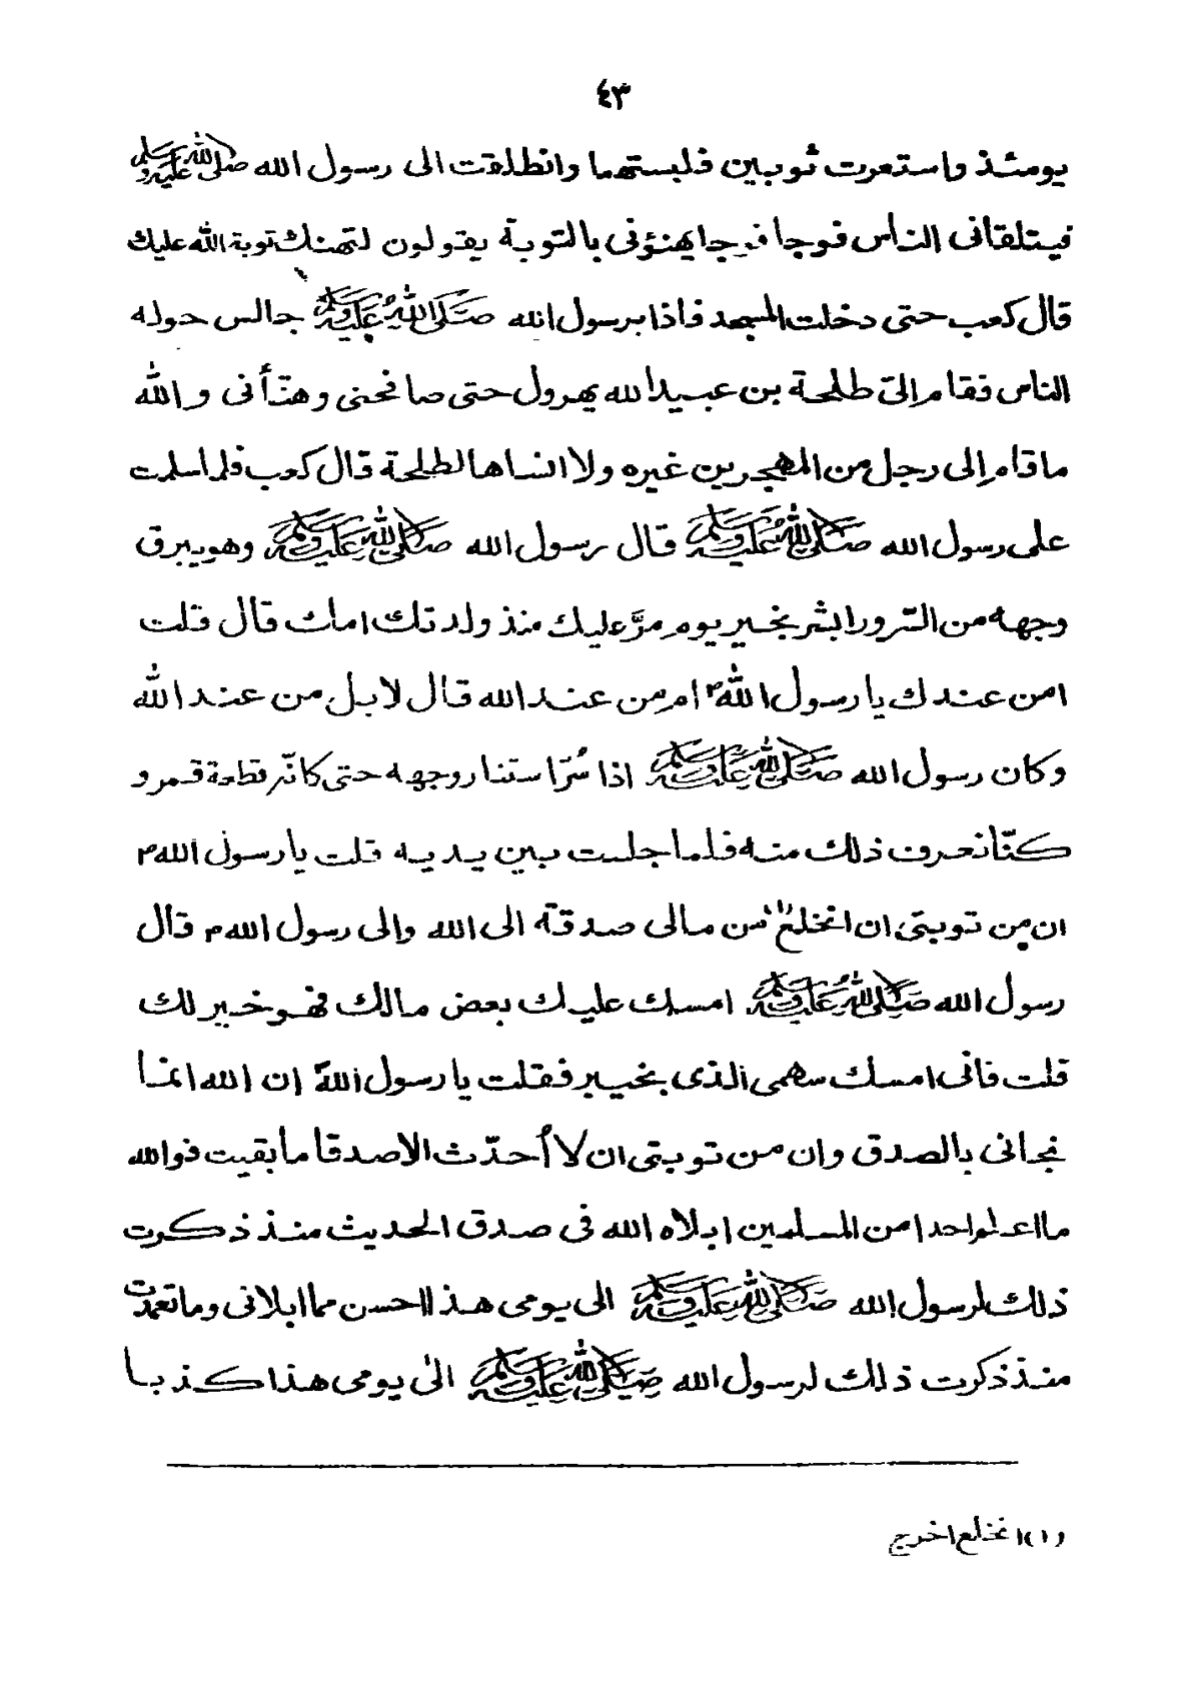 ٤٣
يومئذ واستعرت ثوبين فلبستهما وانطلقت الى رسول الله صلى الله عليه وسلم
فيتلقانى الناس فوجا فوجا يهنؤنى بالتوبة يقولون لتهنك توبة الله عليك
قال كعب حتى دخلت المسجد فاذا برسول الله صلى الله عليه وسلم جالس حوله
الناس فقام الىّ طلحة بن عبيد الله يهرول حتى صافحنى وهنّأنى والله
ما قام إلى رجل من المهجرين غيره ولا انساها لطلحة قال كعب فلما سلمت
على رسول الله صلى الله عليه وسلم قال رسول الله صلى الله عليه وسلم وهو يبرق
وجهه من السّرور ابشر بخير يوم مرَّ عليك منذ ولدتك امك قال قلت
امن عندك يا رسول الله ام من عند الله قال لا بل من عند الله
وكان رسول الله صلى الله عليه وسلم اذا سُرّ استنار وجهه حتى كانّه قطعة قمر و
كنّا نعرف ذلك منه فلما جلست بين يديه قلت يا رسول الله م
ان من توبتى ان انخلع (١) من مالى صدقة الى الله والى رسول الله م قال
رسول الله صلى الله عليه وسلم امسك عليك بعض مالك فهو خير لك
قلت فانى امسك سهمى الذى بخيبر فقلت يا رسول الله ان الله انما
نجانى بالصدق وان من توبتى ان لا أحدّث الا صدقا ما بقيت فوالله
ما اعلم احدا من المسلمين ابلاه الله فى صدق الحديث منذ ذكرت
ذلك لرسول الله صلى الله عليه وسلم الى يومى هذا احسن مما ابلانى وما تعمدت
منذ ذكرت ذلك لرسول الله صلى الله عليه وسلم الى يومى هذا كذبا
(١) انخلع اخرج